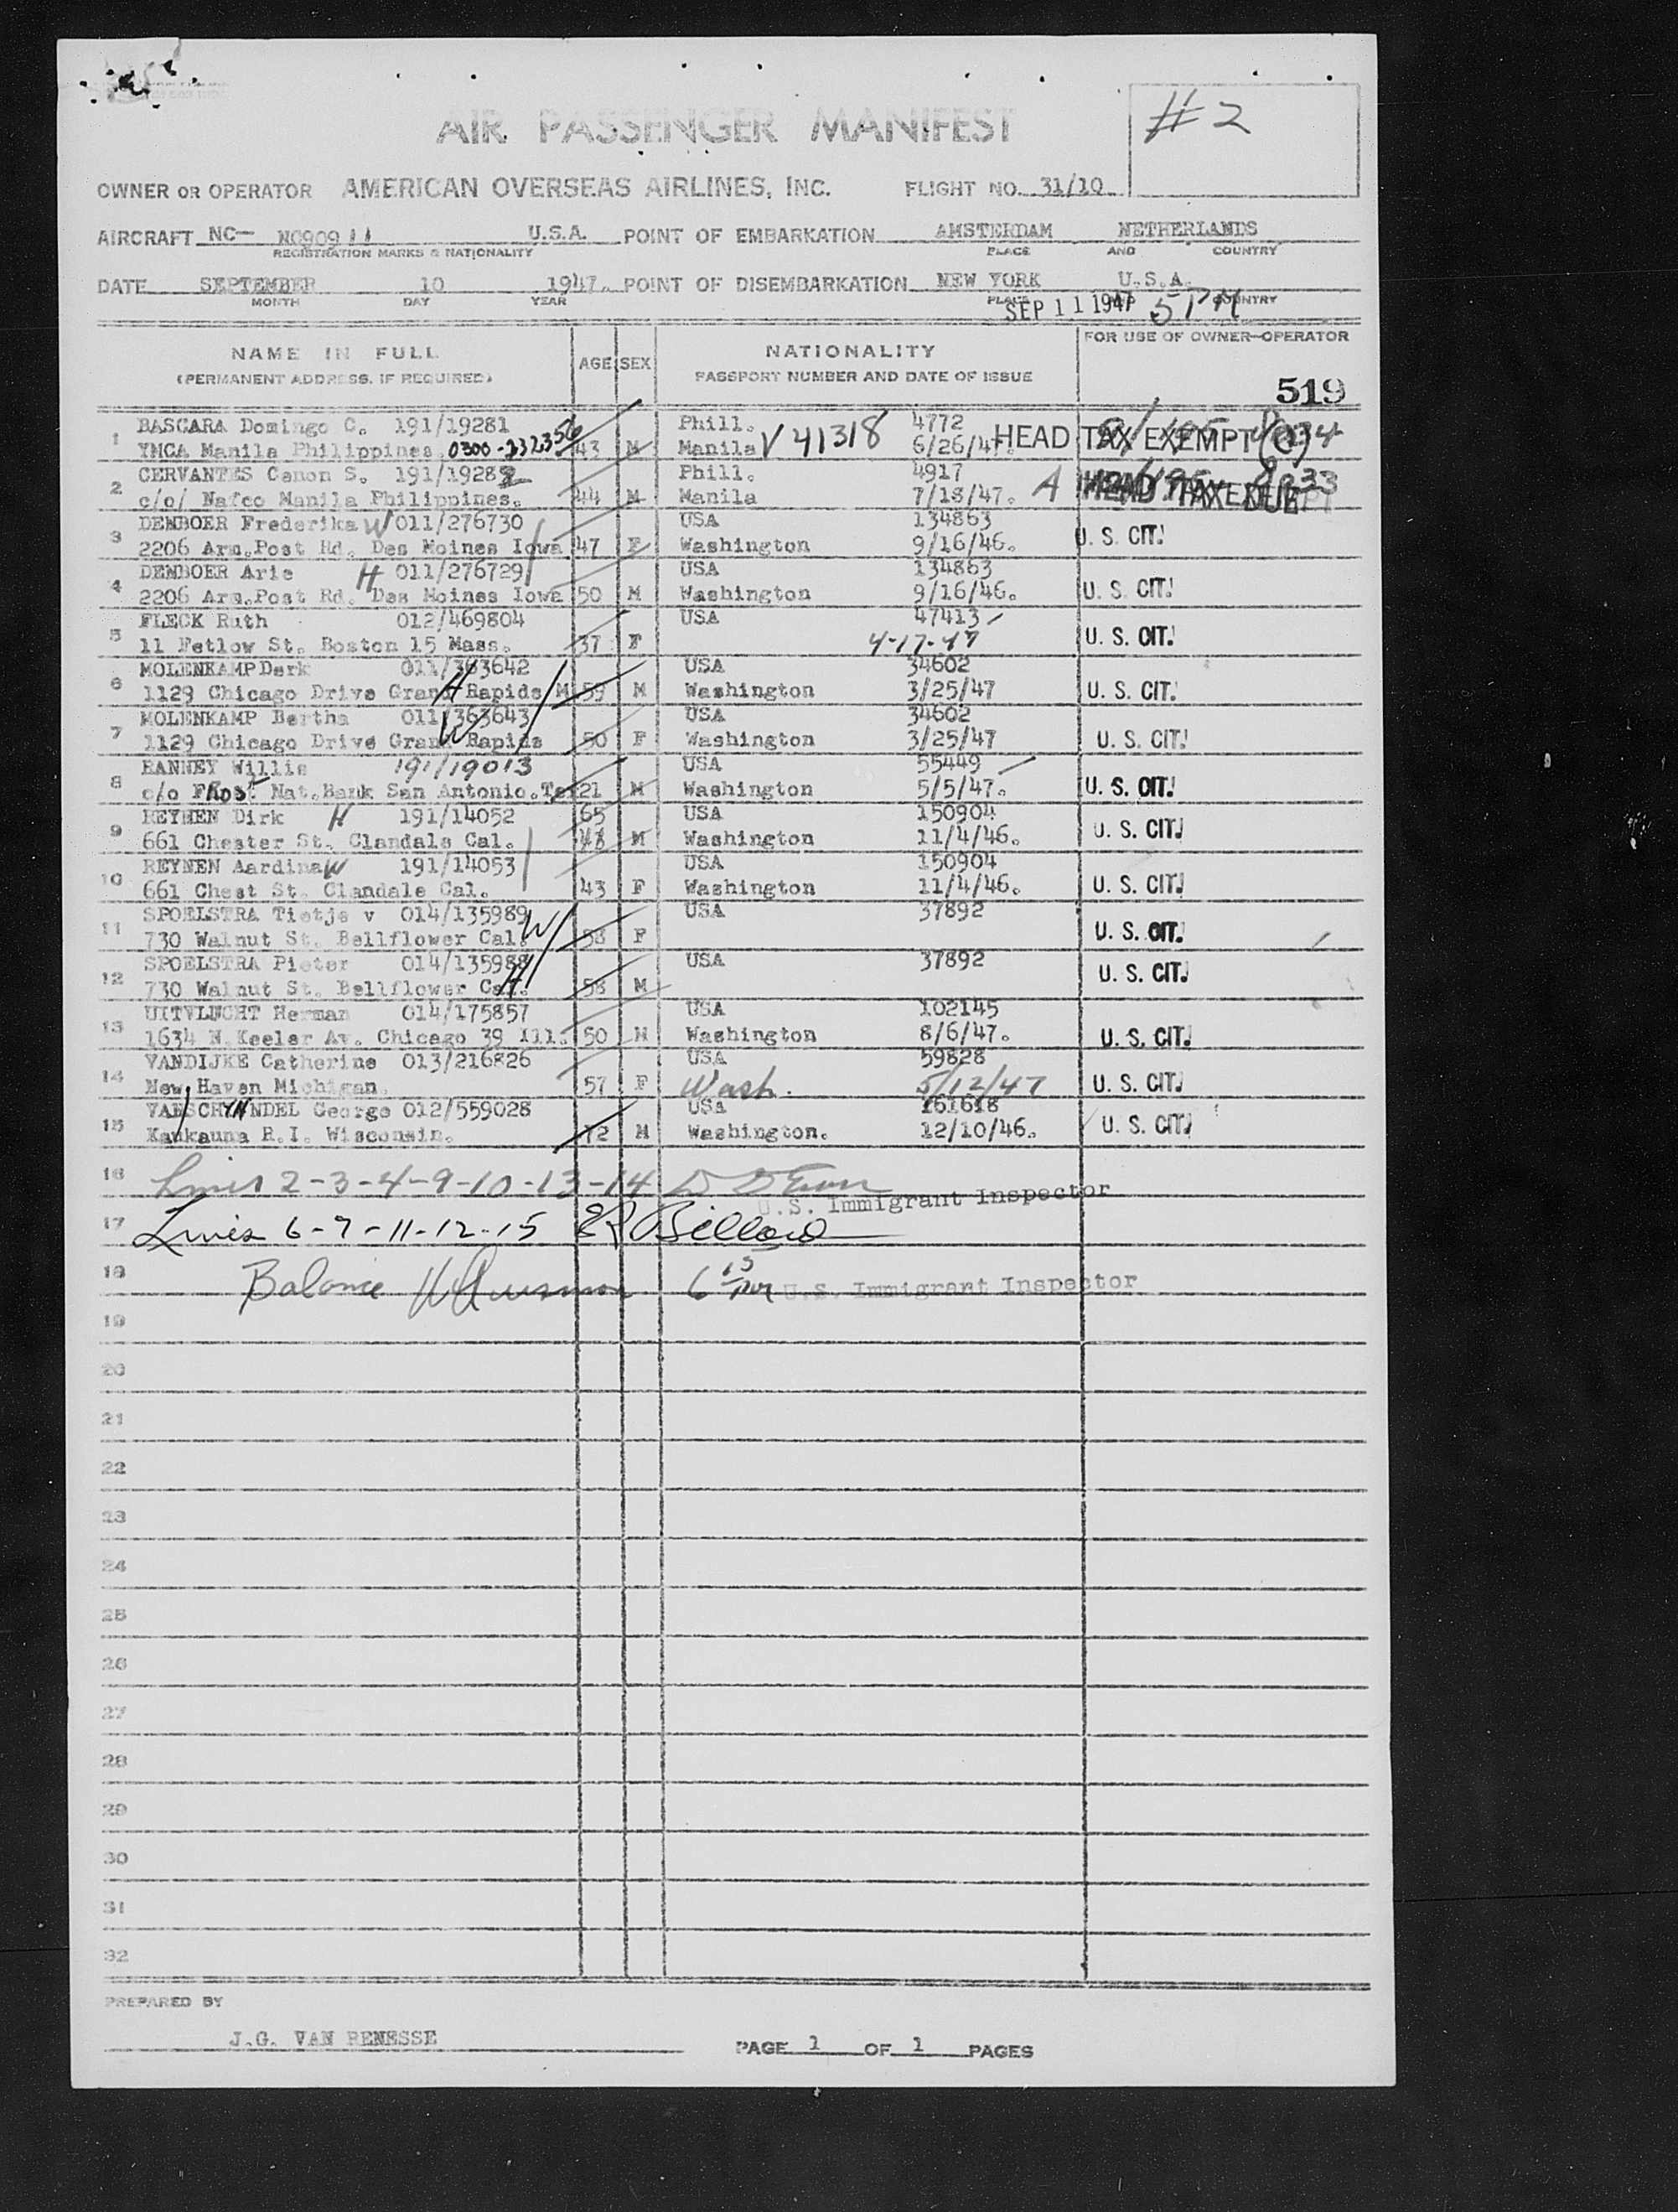 AIR PASSENGER MANIFEST
#2
OWNER OR OPERATOR AMERICAN OVERSEAS AIRLINES, INC. FLIGHT NO. 31/10
AIRCRAFT NC— NC90911 U.S.A. POINT OF EMBARKATION AMSTERDAM NETHERLANDS
REGISTRATION MARKS & NATIONALITY PLACE AND COUNTRY
DATE SEPTEMBER 10 1947. POINT OF DISEMBARKATION NEW YORK U.S.A.
MONTH DAY YEAR PLACE COUNTRY
SEP 11 1947 5 PM
NAME IN FULL AGE SEX NATIONALITY FOR USE OF OWNER-OPERATOR
(PERMANENT ADDRESS, IF REQUIRED) PASSPORT NUMBER AND DATE OF ISSUE
519
1 BASCARA Domingo C. 191/19281 Phill. 4772
YMCA Manila Philippines. 43 M Manila V 41318 6/26/47. HEAD TAX EXEMPT
2 CERVANTES Cenon S. 191/19282 Phill. 4917
c/o/ Nafco Manila Philippines. 44 M Manila 7/18/47. A
3 DENBOER Frederika W 011/276730 USA 134863
2206 Arm.Post Rd. Des Moines Iowa 47 F Washington 9/16/46. U. S. CIT.
4 DENBOER Arie H 011/276729 USA 134863
2206 Arm.Post Rd. Des Moines Iowa 50 M Washington 9/16/46. U. S. CIT.
5 FLECK Ruth 012/469804 USA 47413
11 Fetlow St. Boston 15 Mass. 37 F 4-17-47 U. S. CIT.
6 MOLENKAMP Derk 011/363642 USA 34602
1129 Chicago Drive Grand Rapids M 59 M Washington 3/25/47 U. S. CIT.
7 MOLENKAMP Bertha 011/363643 USA 34602
1129 Chicago Drive Grand Rapids 50 F Washington 3/25/47 U. S. CIT.
8 RANNEY Willis 191/19013 USA 55449
c/o Frost Nat.Bank San Antonio.Te 21 M Washington 5/5/47. U. S. CIT.
9 REYNEN Dirk H 191/14052 65 USA 150904
661 Chester St. Clandale Cal. M Washington 11/4/46. U. S. CIT.
10 REYNEN Aardina W 191/14053 USA 150904
661 Chest St. Clandale Cal. 43 F Washington 11/4/46. U. S. CIT.
11 SPOELSTRA Tietje v 014/135989 W USA 37892
730 Walnut St. Bellflower Cal. 58 F U. S. CIT.
12 SPOELSTRA Pieter 014/135988 H USA 37892
730 Walnut St. Bellflower Cal. 58 M U. S. CIT.
13 UITVLUCHT Herman 014/175857 USA 102145
1634 N.Keeler Av. Chicago 39 Ill. 50 M Washington 8/6/47. U. S. CIT.
14 VANDIJKE Catherine 013/216826 USA 59828
New Haven Michigan. 57 F Wash. 5/12/47 U. S. CIT.
15 George 012/559028 USA 161618
Kaukauna R.I. Wisconsin. 72 M Washington. 12/10/46. U. S. CIT.
16 Lines 2-3-4-9-10-13-14
U.S. Immigrant Inspector
17 Lines 6-7-11-12-15
18 Balance 6 15 PM U.S. Immigrant Inspector
19
20
21
22
23
24
25
26
27
28
29
30
31
32
PREPARED BY
J.G. VAN RENESSE
PAGE 1 OF 1 PAGES